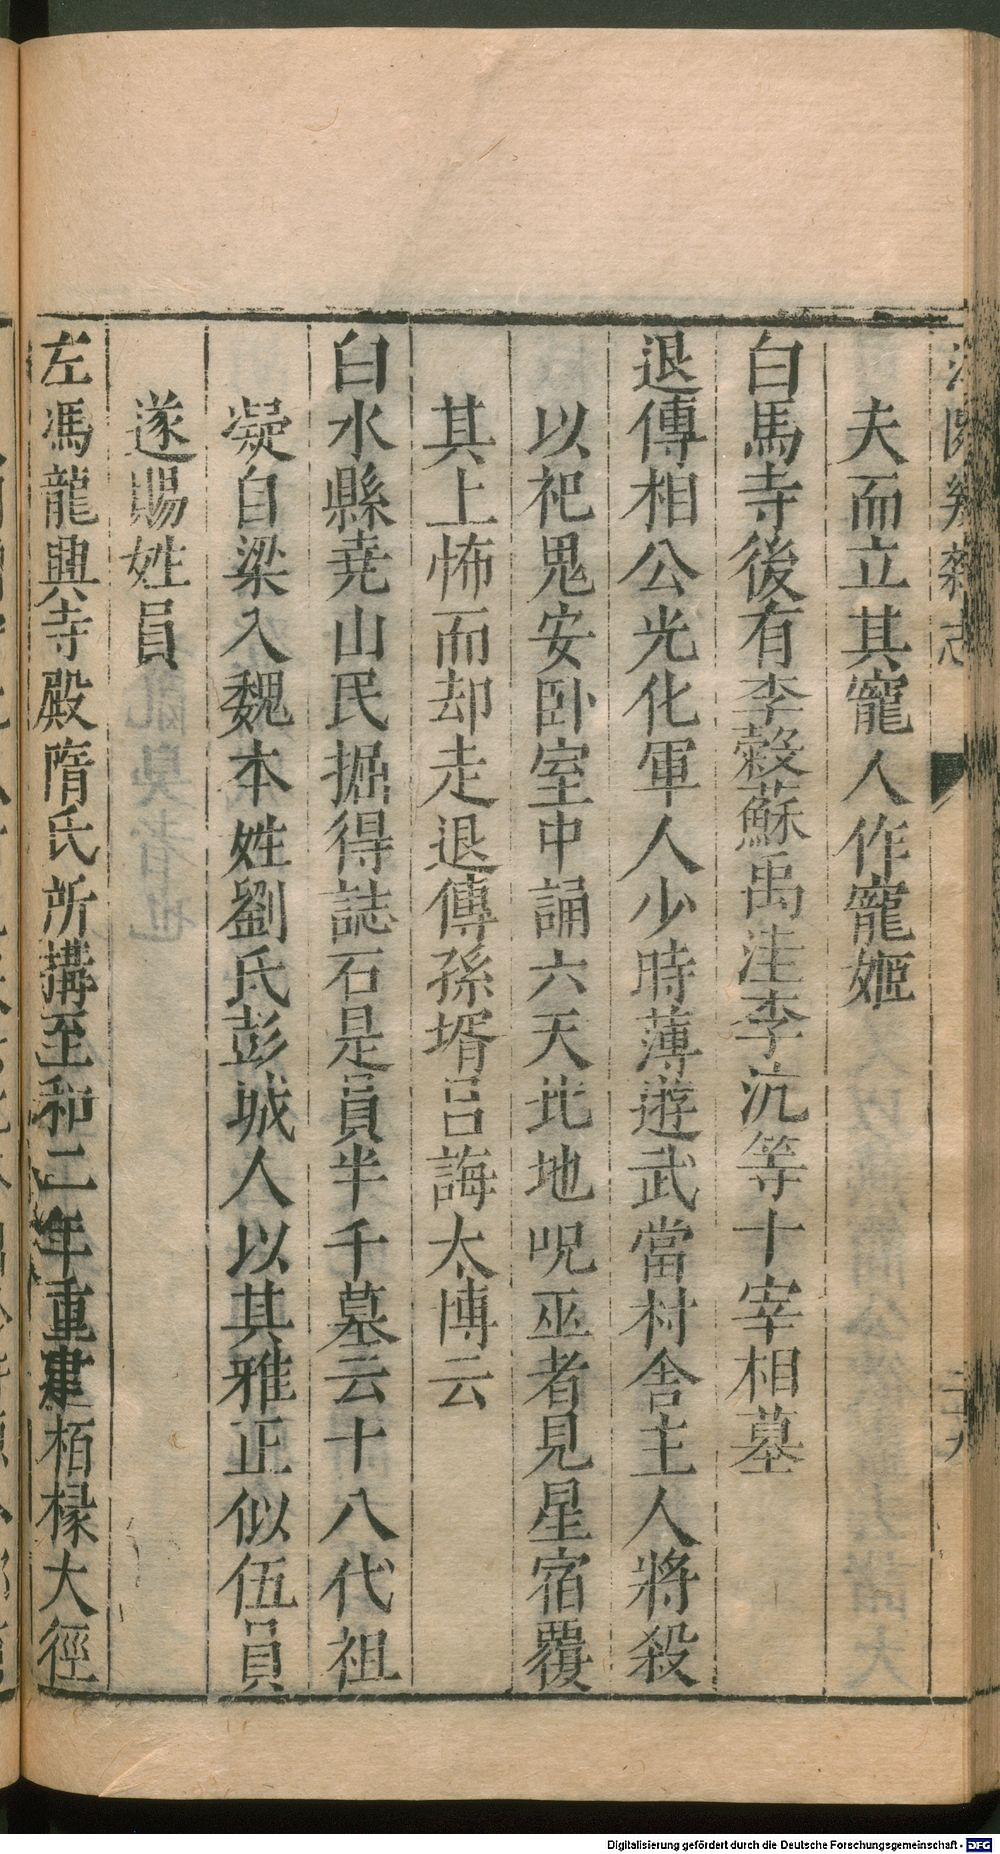 夫而立其寵人作寵姬
白馬寺後有李穀蘇禹洼李沆等十宰相墓
退傳相公光化軍人少時薄遊武當村舍主人將殺
以祀鬼安卧室中誦六天北地呪巫者見星宿覆
其上怖而却走退傳孫壻呂誨太博云
白水縣堯山民掘得誌石是員半千墓云十八代祖
凝自梁入魏本姓劉氏彭城人以其雅正似伍員
遂賜姓員
左馮龍興寺殿隋氏所搆至和二年重建栢椽大徑
Digitalisierung gefördert durch die Deutsche Forschungsgemeinschaft - DFG